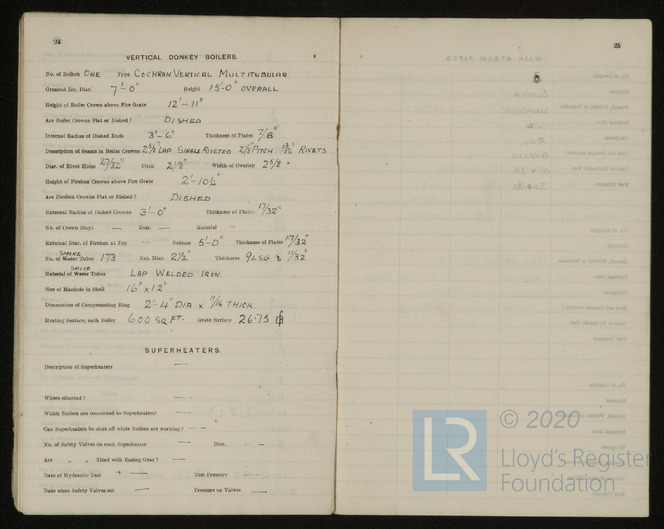 24
VERTICAL DONKEY BOILERS.
No. of Boilers ONE Type COCHRAN VERTICAL MULTITUBULAR
Greatest Int. Diar. 7'-0" Height 15'-0" OVERALL
Height of Boiler Crown above Fire Grate 12'-11"
Are Boiler Crowns Flat or Dished? DISHED
Internal Radius of Dished Ends 3'-6" Thickness of Plates 7/8"
Description of Seams in Boiler Crowns 2 5/8" LAP SINGLE RIVETED 2 1/8" PITCH RIVETS
Diar. of Rivet Holes 27/32" Pitch 2 1/8" Width of Overlap 2 5/8"
Height of Firebox Crowns above Fire Grate 2'-10½"
Are Firebox Crowns Flat or Dished? DISHED
External Radius of Dished Crowns 3'-0" Thickness of Plates 17/32"
No. of Crown Stays — Diar. — Material —
External Diar. of Firebox at Top — Bottom 5'-0" Thickness of Plates 17/32"
SMOKE
No. of Water Tubes 173 Ext. Diar. 2½" Thickness 9 LSG & 11/32"
SMOKE
Material of Water Tubes LAP WELDED IRON.
Size of Manhole in Shell 16" x 12"
Dimensions of Compensating Ring 2'-4" DIA x 11/16 THICK.
Heating Surface, each Boiler 600 SQ FT. Grate Surface 26.75
SUPERHEATERS.
Description of Superheaters —
Where situated? —
Which Boilers are connected to Superheaters? —
Can Superheaters be shut off while Boilers are working? —
No. of Safety Valves on each Superheater — Diar. —
Are „ „ fitted with Easing Gear? —
Date of Hydraulic Test — Test Pressure —
Date when Safety Valves set — Pressure on Valves —
25
LR
© 2020
Lloyd's Register
Foundation